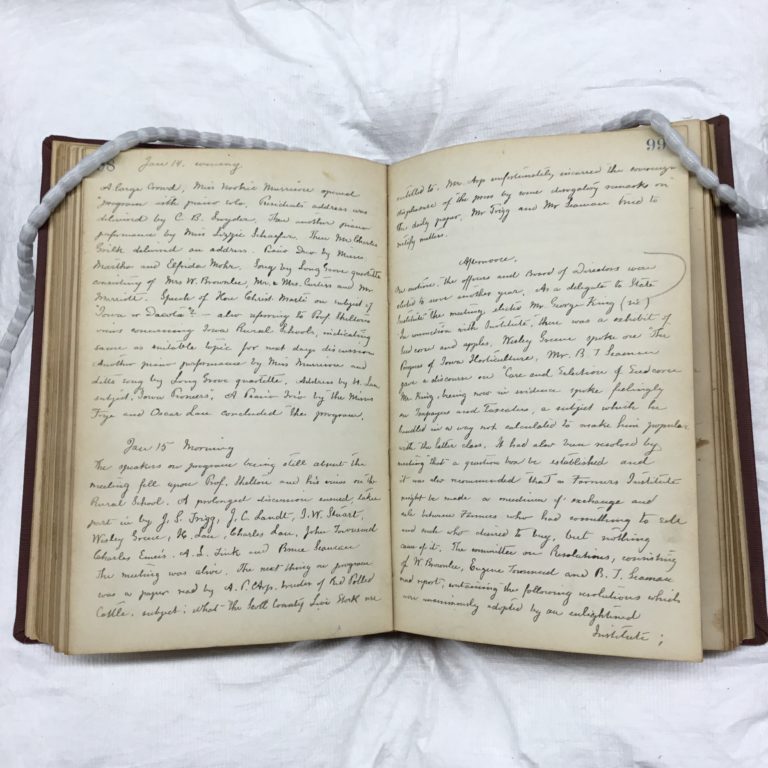 98
Jan 14. evening.
A large crowd, Miss Nookie Murrison opened
program with piano solo. Presidents address was
delivered by C. B. Snyder. Then another piano
performance by Miss Lizzie Schaefer. Then Mr. Charles
delivered an address. Piano Duo by Misses
Martha and Elfrida Mohr. Song by Long Grove quartette
consisting of Mrs W. Brownlie, Mr. & Mrs. Curtiss and Mr.
Marriott. Speech of Hon Christ. Marti on subject of
"Iowa or Dacota"? — also refering to Prof. Heltons
views concerning Iowa Rural Schools, indicating
same as suitable topic for next days discussion
Another piano performance by Miss Murrison and
song by Long Grove quartette. Address by H. Lau
subject, "Iowa Pioneers". A Piano Trio by the Misses
Frye and Oscar Lau concluded the program.
Jan 15 Morning
The speakers on program being still about the
meeting fell upon Prof. and his views on the
Rural School. A prolonged discussion ensued, taken
part in by J. S. Trigg, J. C. Landt, I. W. Stuart,
Wesley Greene, H. Lau, Charles Lau, John Townsend
Charles Emeis, A. L. Fink and Bruce Seaman
The meeting was alive. The next thing on program
was a paper read by A. P. Arp, breeder of Red Polled
Cattle, subject; What the Scott County Live Stock are
99
entitled to. Mr. Arp unfortunately incurred the
displeasure of the press by some derogatory remarks on
the daily paper. Mr Trigg and Mr Seaman tried to
rectify matters.
Afternoone.
On motion, the officers and Board of Directors were
elected to serve another year. As a delegate to State
Institute the meeting elected Mr. George King (sic)
In connection with Institute, there was a exhibit of
seed corn and apples. Wesley Greene spoke on "The
Progress of Iowa Horticulture," Mr. B. T. Seaman
gave a discourse on "Care and Selection of Seedcorn
Mr King, being now in evidence spoke feelingly
on Taxpayers and Taxeaters, a subject which he
handled in a way not calculated to make him popular
with the latter class. It had also been resolved by
meeting that a question box be established and
it was also recommended that a Farmers Institute
might be made a medium of exchange and
sale between Farmers who had something to sell
and such who desired to buy, but nothing
came of it. The committee on Resolutions, consisting
of W. Brownlie, Eugene Townsend and B. T. Seaman
read report, containing the following resolutions which
were unanimously adopted by an enlightined
Institute ;